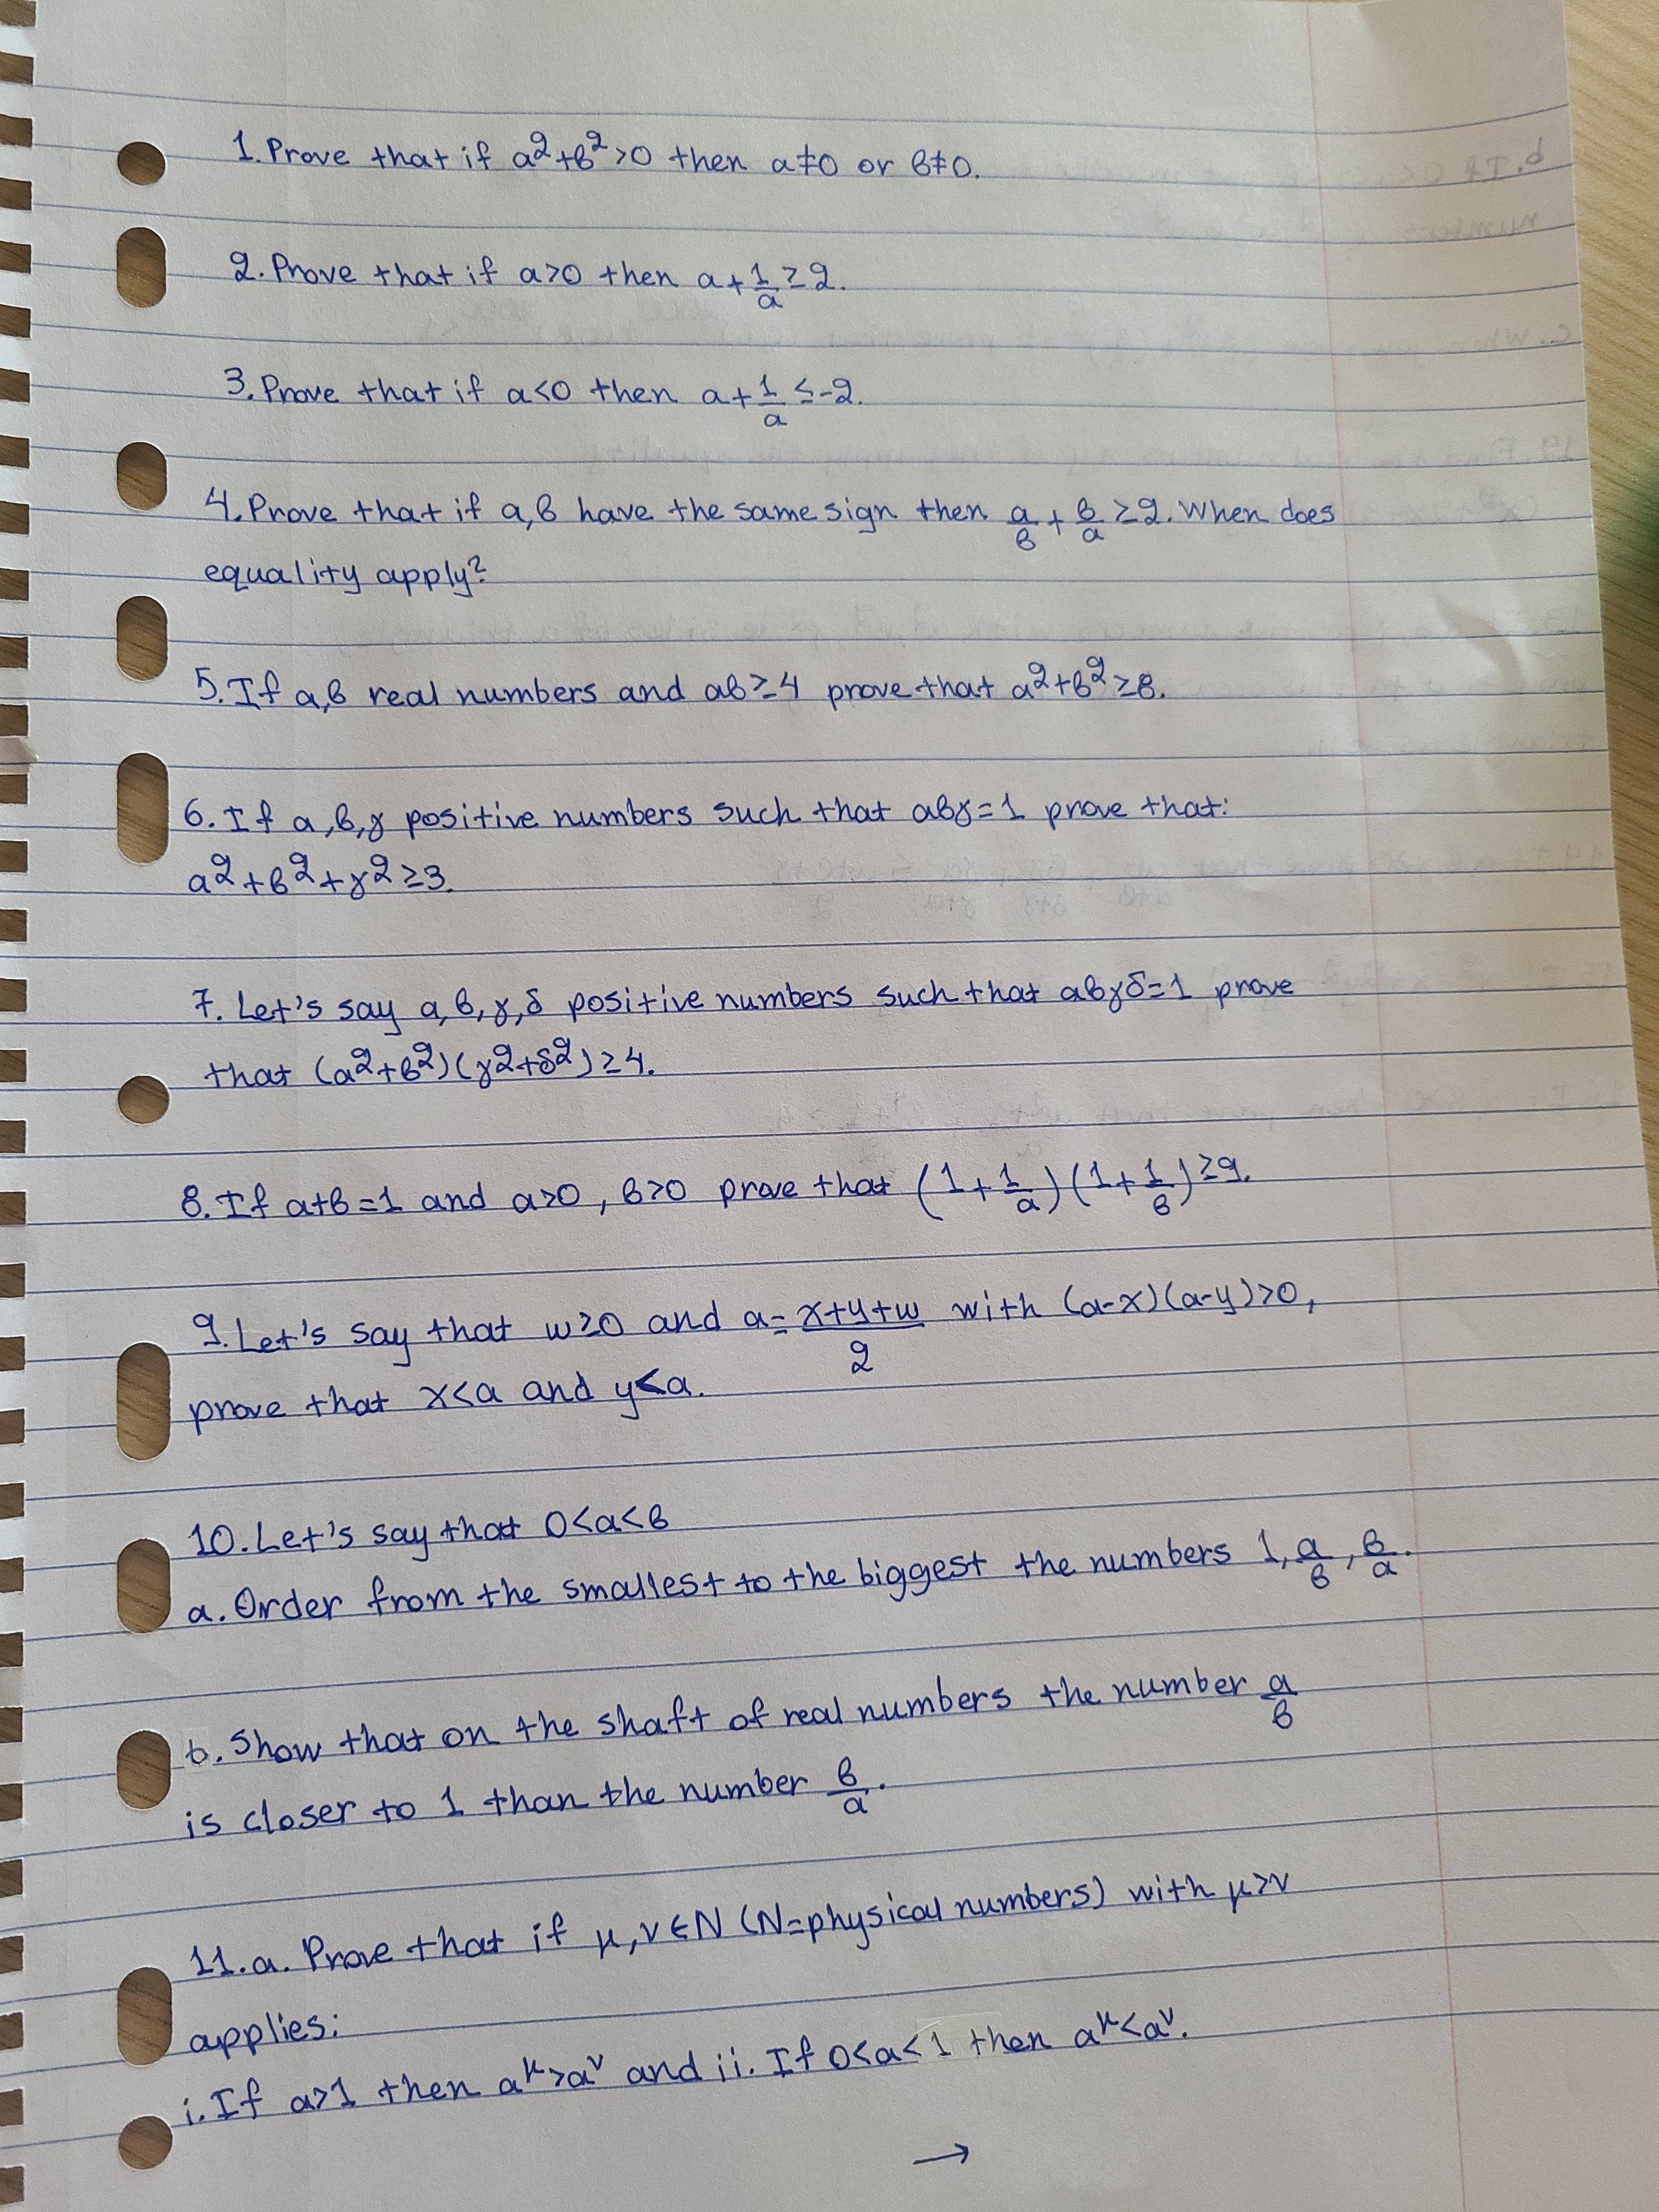 1. Prove that if a²+β²>0 then a≠0 or β≠0.
2. Prove that if a>0 then a+1/a≥2.
3. Prove that if a<0 then a+1/a≤-2.
4. Prove that if a,β have the same sign then a/β+β/a≥2. When does
equality apply?
5. If a,β real numbers and aβ≥4 prove that a²+β²≥8.
6. If a,β,γ positive numbers such that aβγ=1 prove that:
a²+β²+γ²≥3.
7. Let's say a,β,γ,δ positive numbers such that aβγδ=1 prove
that (a²+β²)(γ²+δ²)≥4.
8. If a+β=1 and a>0, β>0 prove that (1+1/a)(1+1/β)≥9.
9. Let's say that w≥0 and a=(x+y+w)/2 with (a-x)(a-y)>0,
prove that x<a and y<a.
10. Let's say that 0<a<β
a. Order from the smallest to the biggest the numbers 1, a/β, β/a.
b. Show that on the shaft of real numbers the number a/β
is closer to 1 than the number β/a.
11. a. Prove that if μ,ν∈N (N=physical numbers) with μ>ν
applies:
i. If a>1 then a^μ>a^ν and ii. If 0<a<1 then a^μ<a^ν.
→